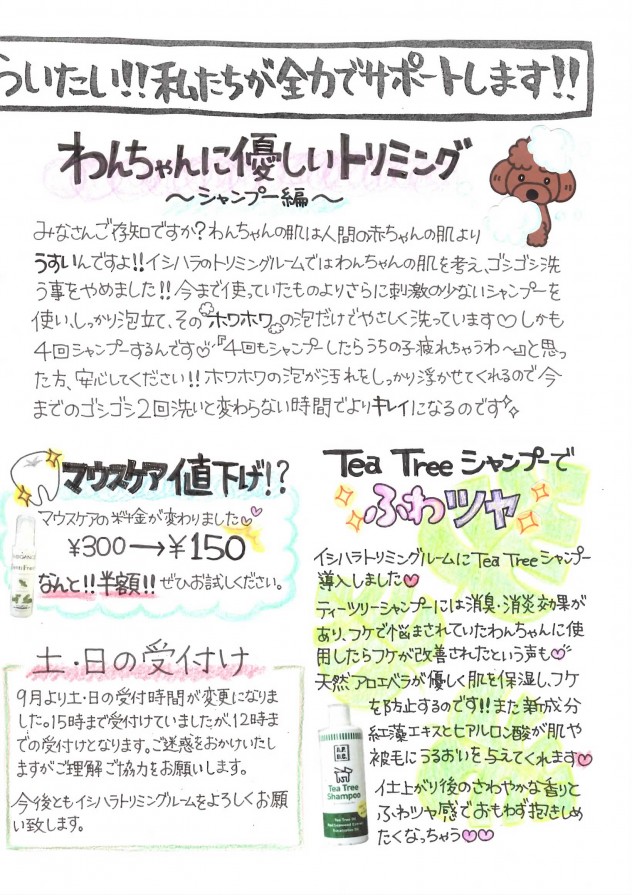 ういたい!!私たちが全力でサポートします!!
わんちゃんに優しいトリミング
～シャンプー編～
みなさんご存知ですか?わんちゃんの肌は人間の赤ちゃんの肌より
うすいんですよ!!イシハラのトリミングルームではわんちゃんの肌を考え、ゴシゴシ洗
う事をやめました!!今まで使っていたものよりさらに刺激の少ないシャンプーを
使い、しっかり泡立て、その"ホワホワ"の泡だけでやさしく洗っています♡しかも
4回シャンプーするんです♡『4回もシャンプーしたらうちの子疲れちゃうわ~』と思っ
た方、安心してください!!ホワホワの泡が汚れをしっかり浮かせてくれるので今
までのゴシゴシ2回洗いと変わらない時間でよりキレイになるのです
マウスケア値下げ!?
マウスケアの料金が変わりました♡
¥300→¥150
なんと!!半額!!ぜひお試しください。
土・日の受付け
9月より土・日の受付時間が変更になりま
した。15時まで受付けていましたが、12時ま
での受付けとなります。ご迷惑をおかけいたし
ますがご理解ご協力をお願いします。
今後ともイシハラトリミングルームをよろしくお願
い致します。
Tea Treeシャンプーで
ふわツヤ
イシハラトリミングルームにTea Treeシャンプー
導入しました♥
ティーツリーシャンプーには消臭・消炎効果が
あり、フケで悩まされていたわんちゃんに使
用したらフケが改善されたという声も♡
天然アロエベラが優しく肌を保湿し、フケ
を防止するのです!!また新成分
紅藻エキスとヒアルロン酸が肌や
被毛にうるおいを与えてくれます♥
仕上がり後のさわやかな香りと
ふわツヤ感でおもわず抱きしめ
たくなっちゃう♡♡
A.P.
D.C.
Tea Tree
Shampoo
Tea Tree Oil